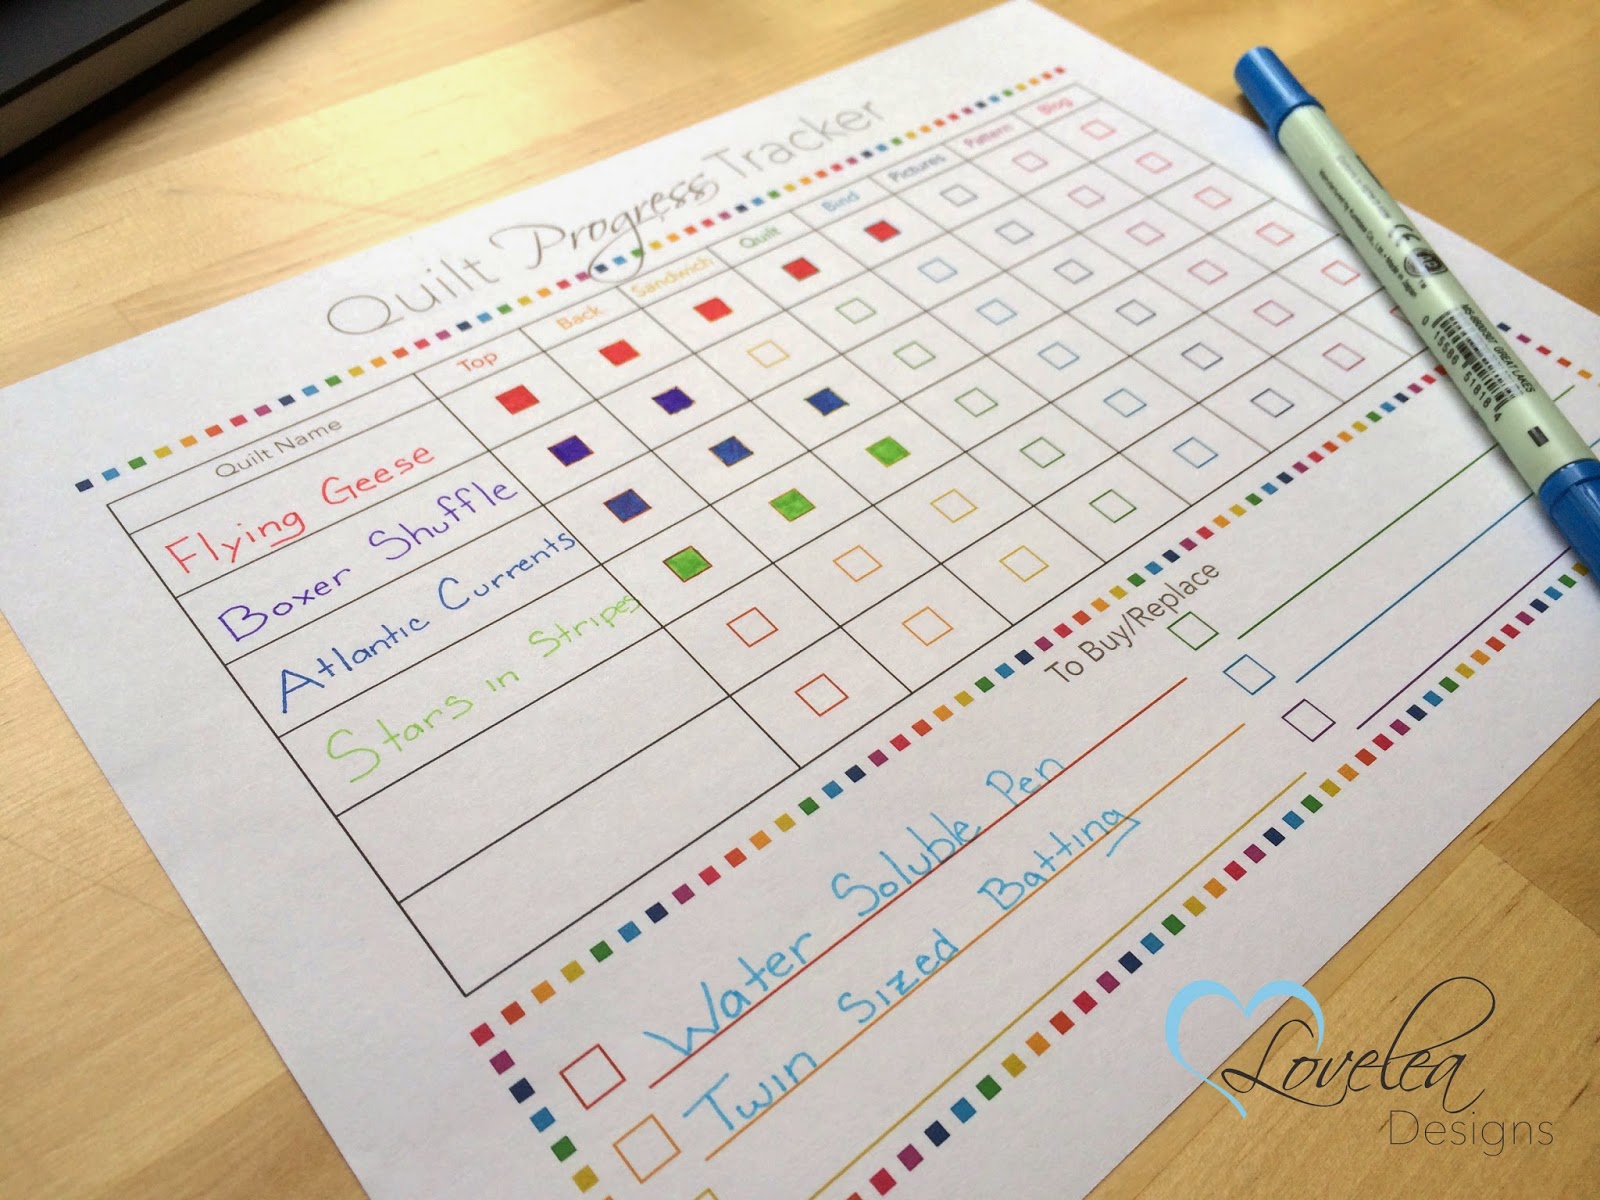 Quilt Progress Tracker
Quilt Name Top Back Sandwich Quilt Bind Pictures Pattern Blog
Flying Geese
Boxer Shuffle
Atlantic Currents
Stars in Stripes
To Buy/Replace
Water Soluble Pen
Twin Sized Batting
MS-6600/807 GREAT LAKES
0 15586 51818 4
CE
Lovelea
Designs